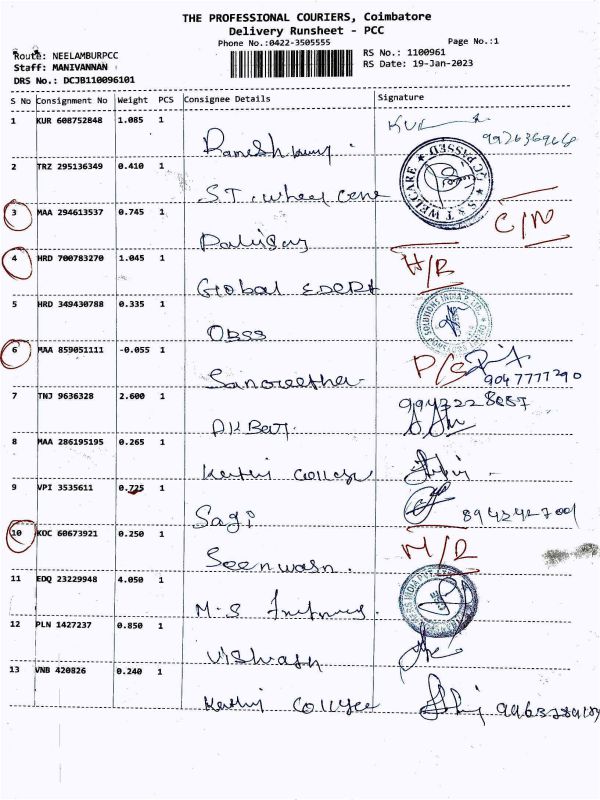 THE PROFESSIONAL COURIERS, Coimbatore
Delivery Runsheet - PCC
Phone No.:0422-3505555
Page No.:1
Route: NEELAMBURPCC
RS No.: 1100961
Staff: MANIVANNAN
RS Date: 19-Jan-2023
DRS No.: DCJB110096101
S No Consignment No Weight PCS Consignee Details Signature
1 KUR 608752848 1.085 1
2 TRZ 295136349 0.410 1 S.T. wheel
3 MAA 294613537 0.745 1 C/N
4 HRD 700783270 1.045 1 Global H/R
5 HRD 349430788 0.335 1 OBSS
6 MAA 859051111 -0.055 1 P/S 9047777290
7 TNJ 9636328 2.600 1
8 MAA 286195195 0.265 1 Kathij College
9 VPI 3535611 0.725 1 Sagi
10 KOC 60673921 0.250 1 Seenwasn.
11 EDQ 23229948 4.050 1 M.S
12 PLN 1427237 0.850 1 Viswash
13 VNB 420826 0.240 1 Kathij College